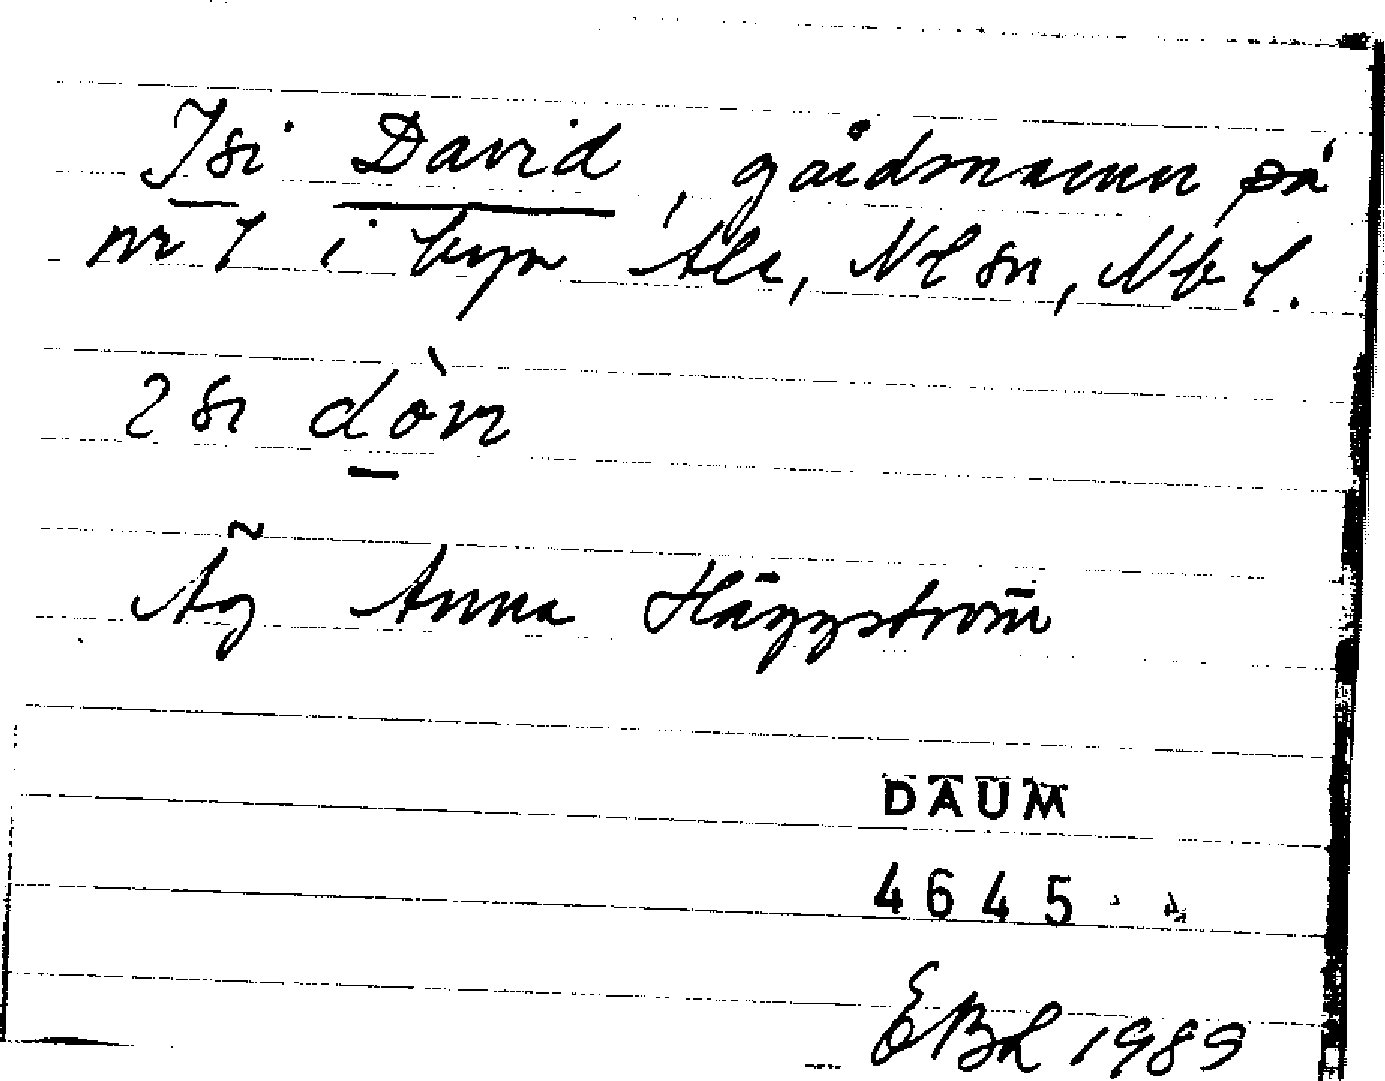 Isi David, gårdsmann på
nr 7 i byn Ale, Nl sn, Nb l.
2 si dòvι
Ãg Anna Häggström
DAUM
4645
EBL 1989